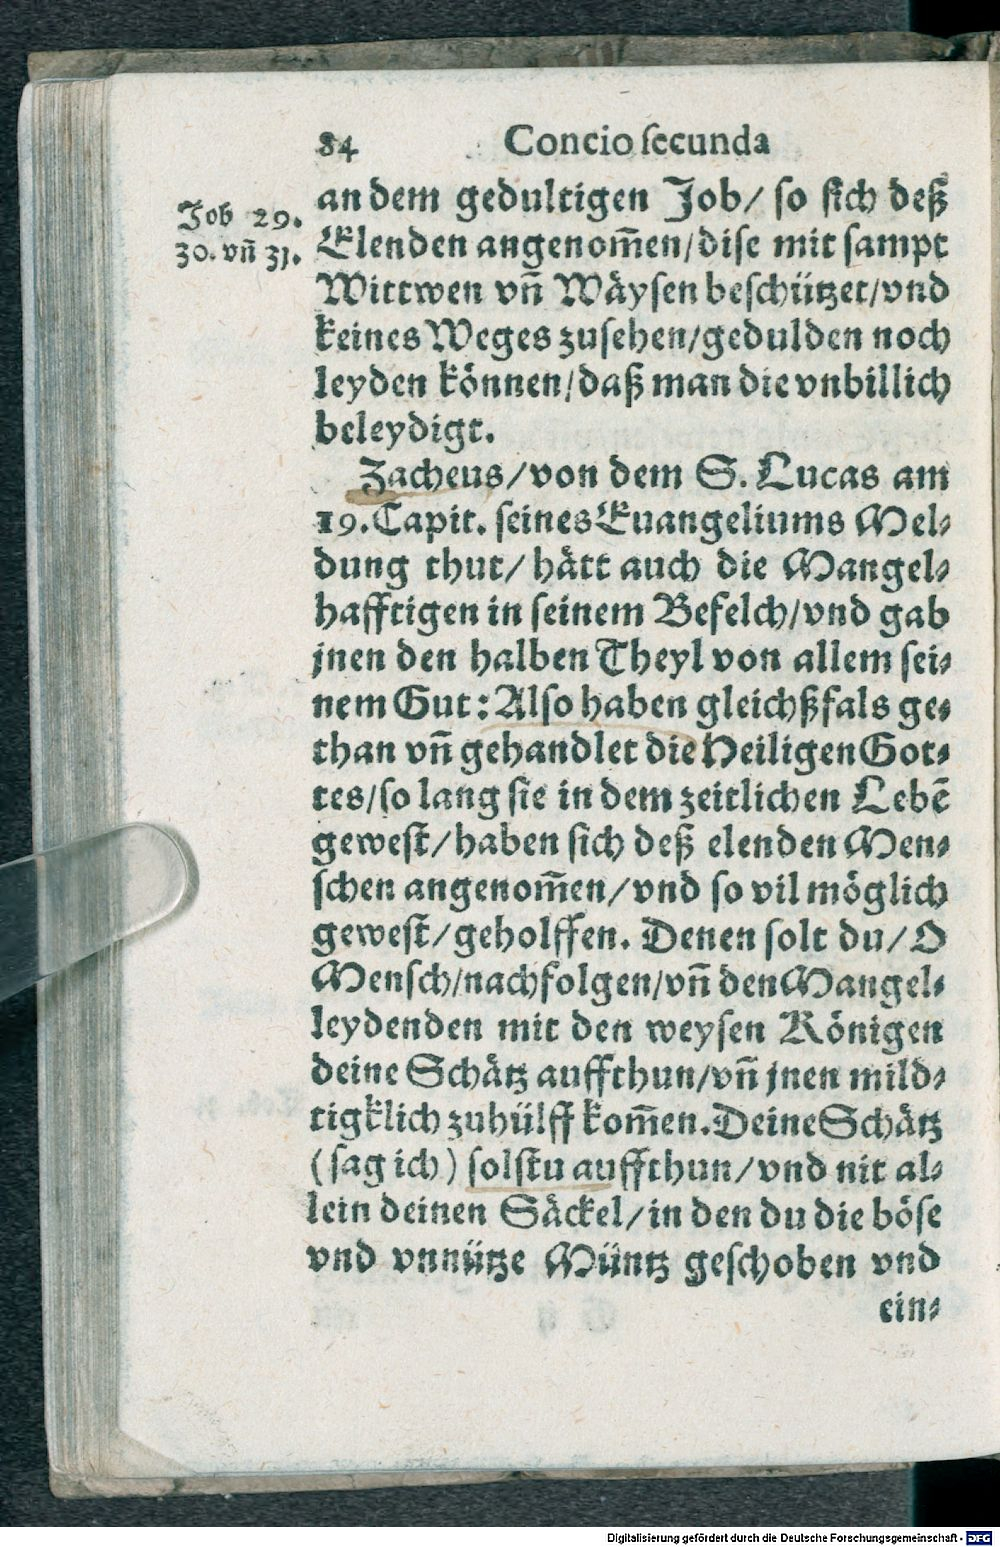 84 Concio secunda
Job 29.
30. vn̄ 31.
an dem gedultigen Job/ so sich deß
Elenden angenom̄en/dise mit sampt
Wittwen vn̄ Wäysen beschützet/vnd
keines Weges zusehen/gedulden noch
leyden können/daß man die vnbillich
beleydigt.
Zacheus/von dem S. Lucas am
19. Capit. seines Euangeliums Mel-
dung thut/ hätt auch die Mangel-
hafftigen in seinem Befelch/vnd gab
jnen den halben Theyl von allem sei-
nem Gut: Also haben gleichßfals ge-
than vn̄ gehandlet die Heiligen Got-
tes/so lang sie in dem zeitlichen Lebē
gewest/haben sich deß elenden Men-
schen angenom̄en/vnd so vil möglich
gewest/geholffen. Denen solt du/O
Mensch/nachfolgen/vn̄ den Mangel-
leydenden mit den weysen Königen
deine Schätz auffthun/vn̄ jnen mild-
tigklich zuhülff kom̄en. Deine Schätz
(sag ich) solstu auffthun/vnd nit al-
lein deinen Säckel/in den du die böse
vnd vnnütze Müntz geschoben vnd
ein-
Digitalisierung gefördert durch die Deutsche Forschungsgemeinschaft - DFG